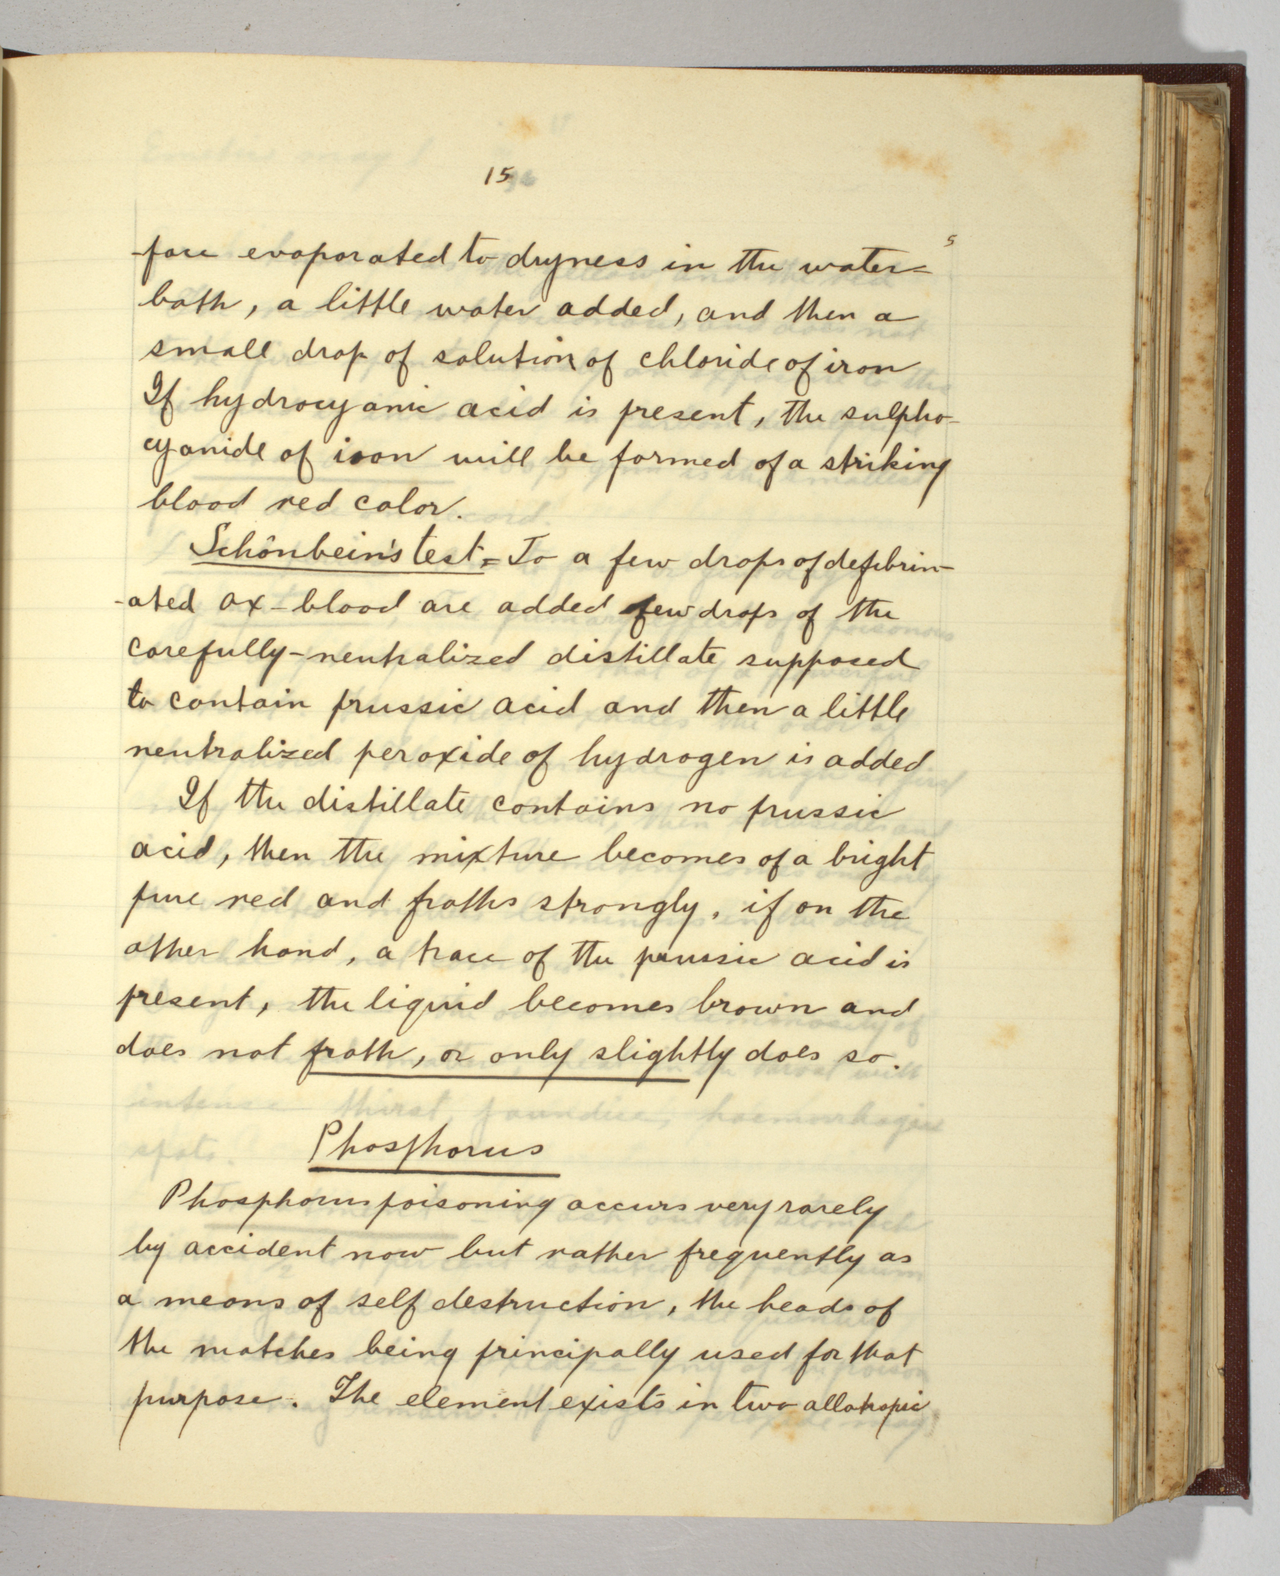 15
5
-fore evaporated to dryness in the water=
bath, a little water added, and then a
small drop of solution of chloride of iron
If hydrocyanic acid is present, the sulpho-
cyanide of iron will be formed of a striking
blood red color.
Schönbein's test = To a few drops of defibrin-
-ated ox-blood are added few drops of the
carefully-neutralized distillate supposed
to contain prussic acid and then a little
neutralized peroxide of hydrogen is added
If the distillate contains no prussic
acid, then the mixture becomes of a bright
pure red and froths strongly, if on the
other hand, a trace of the prussic acid is
present, the liquid becomes brown and
does not froth, or only slightly does so.
Phosphorus
Phosphorus poisoning occurs very rarely
by accident now but rather frequently as
a means of self destruction, the heads of
the matches being principally used for that
purpose. The element exists in two allotropic